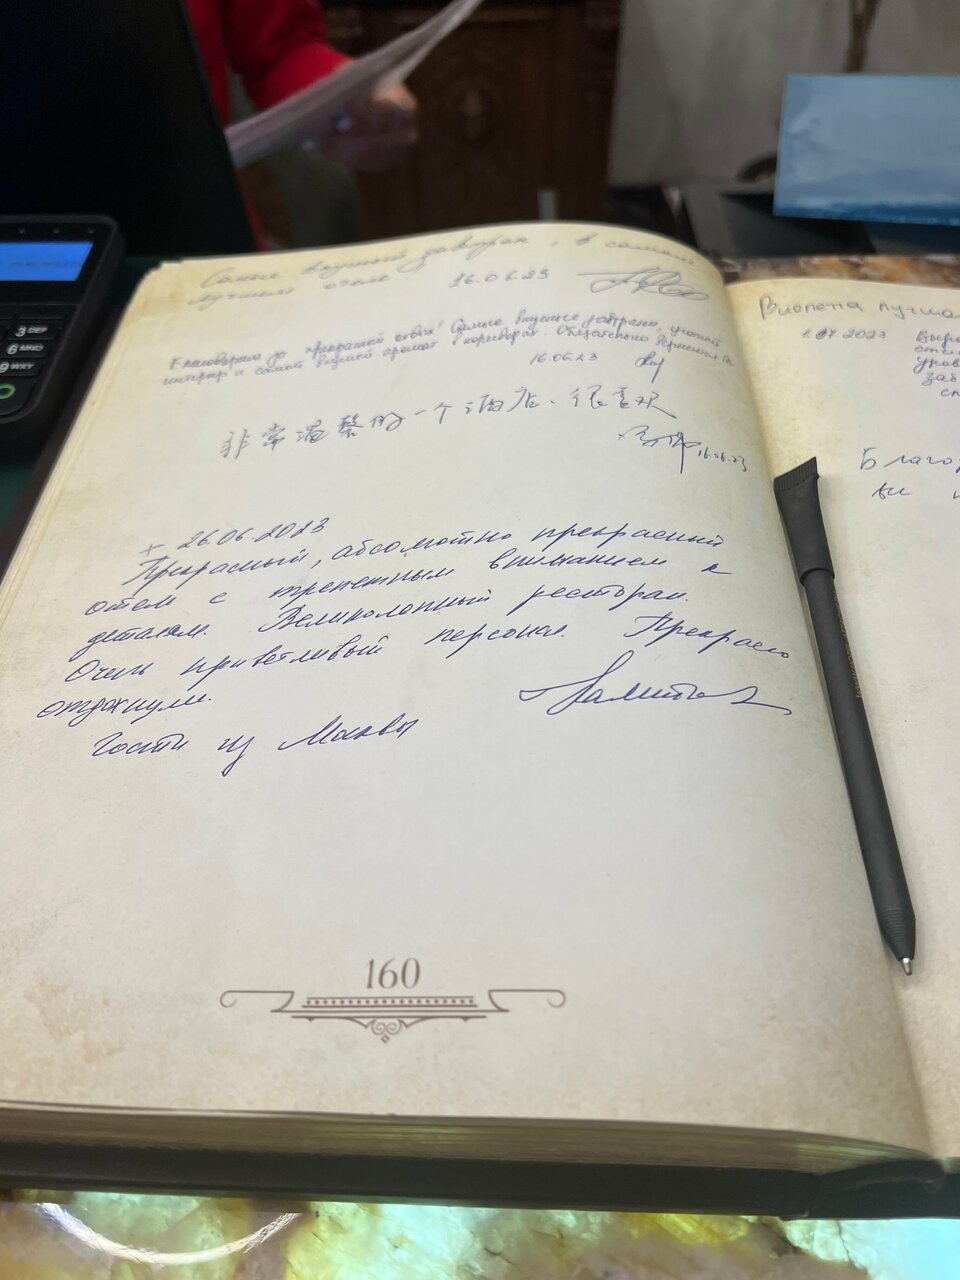 Самый вкусный завтрак, в самом
лучшем отеле 16.06.23
Благодарим за прекрасный отдых! Самые вкусные завтраки, уютный
интерьер и самый аромат в коридорах. Обязательно
16.06.23
非常温馨的一个酒店.很喜欢
16.06.23
+ 26.06.2023
Прекрасный, абсолютно прекрасный
отель с трепетным вниманием к
деталям. Великолепный ресторан.
Очень приветливый персонал. Прекрасно
отдохнули.
Гости из Москвы
160
Виолета лучша
1.07.2023
Благо
3 DEF
6 MNO
9 WXY